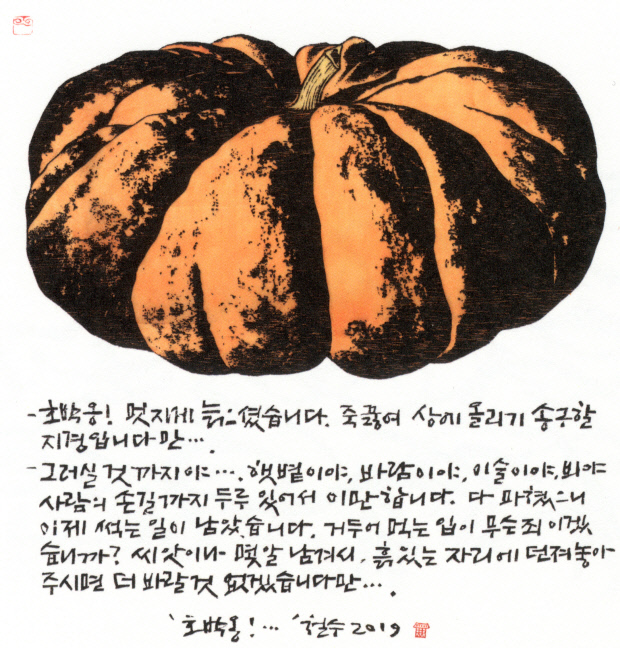 - 호박옹! 멋지게 늙으셨습니다. 죽 끓여 상에 올리기 송구할
지경입니다만….
- 그러실 것까지야…. 햇볕이야, 바람이야, 이슬이야, 뵈야
사람의 손길까지 두루 있어서 이만합니다. 다 파했으니
이제 썩는 일이 남았습니다. 거두어 먹는 입이 무슨 죄이겠
습니까? 씨앗이나 몇 알 남겨서, 흙 있는 자리에 던져 놓아
주시면 더 바랄 것 없겠습니다만….
'호박옹!… ' 철수 2019